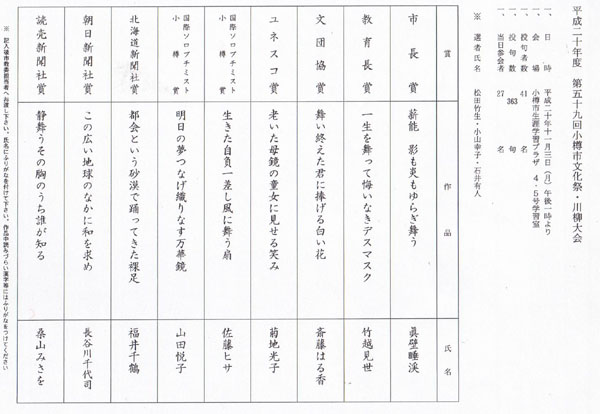 平成二十年度　第五十九回小樽市文化祭・川柳大会
一、日　時　平成二十年十一月三日（月）午後一時より
一、会　場　小樽市生涯学習プラザ　4・5号学習室
一、投句者数　41　名
一、投句数　363　句
一、当日参会者　27　名
※　選者氏名　松田竹生・小山幸子・石井有人
賞　作品　氏名
市長賞　薪能　影も炎もゆらぎ舞う　眞壁睡渓
教育長賞　一生を舞って悔いなきデスマスク　竹越見世
文団協賞　舞い終えた君に捧げる白い花　斎藤はる香
ユネスコ賞　老いた母鏡の童女に見せる笑み　菊地光子
国際ソロプチミスト小樽賞　生きた自負一差し風に舞う扇　佐藤ヒサ
国際ソロプチミスト小樽賞　明日の夢つなげ織りなす万華鏡　山田悦子
北海道新聞社賞　都会という砂漠で踊ってきた裸足　福井千鶴
朝日新聞社賞　この広い地球のなかに和を求め　長谷川千代司
読売新聞社賞　静舞うその胸のうち誰が知る　桑山みさを
※　記入後市教委担当者へお渡し下さい。氏名にふりがなを付けて下さい。作品中読みづらい漢字等にはふりがなをつけてください